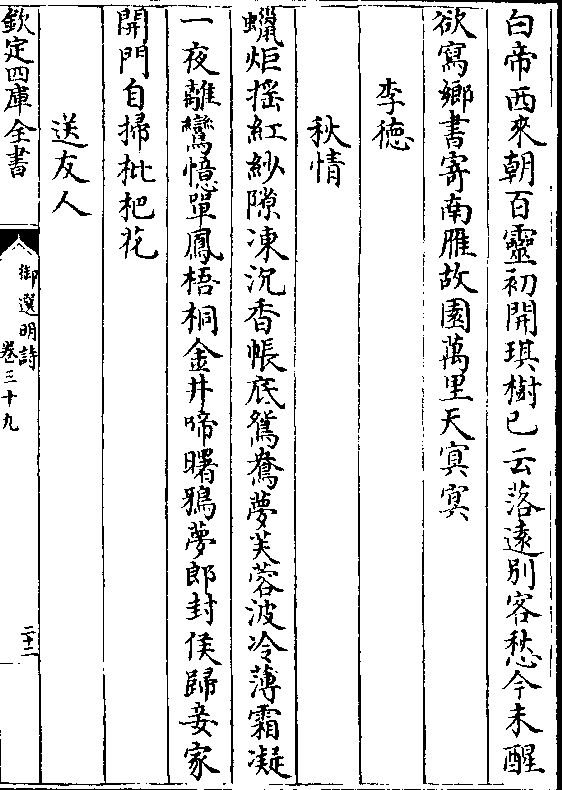 白帝西來朝百靈初開琪樹已云落遠別客愁今未醒
欲寫鄉書寄南雁故園萬里天冥冥
李德
秋情
蠟炬揺紅紗隙凍沉香帳底鴛鴦夢芙蓉波冷薄霜凝
一夜離鸞憶單鳳梧桐金井啼曙鴉夢郎封侯歸妾家
開門自掃枇杷花
送友人
欽定四庫全書
御選明詩
卷三十九
二十二